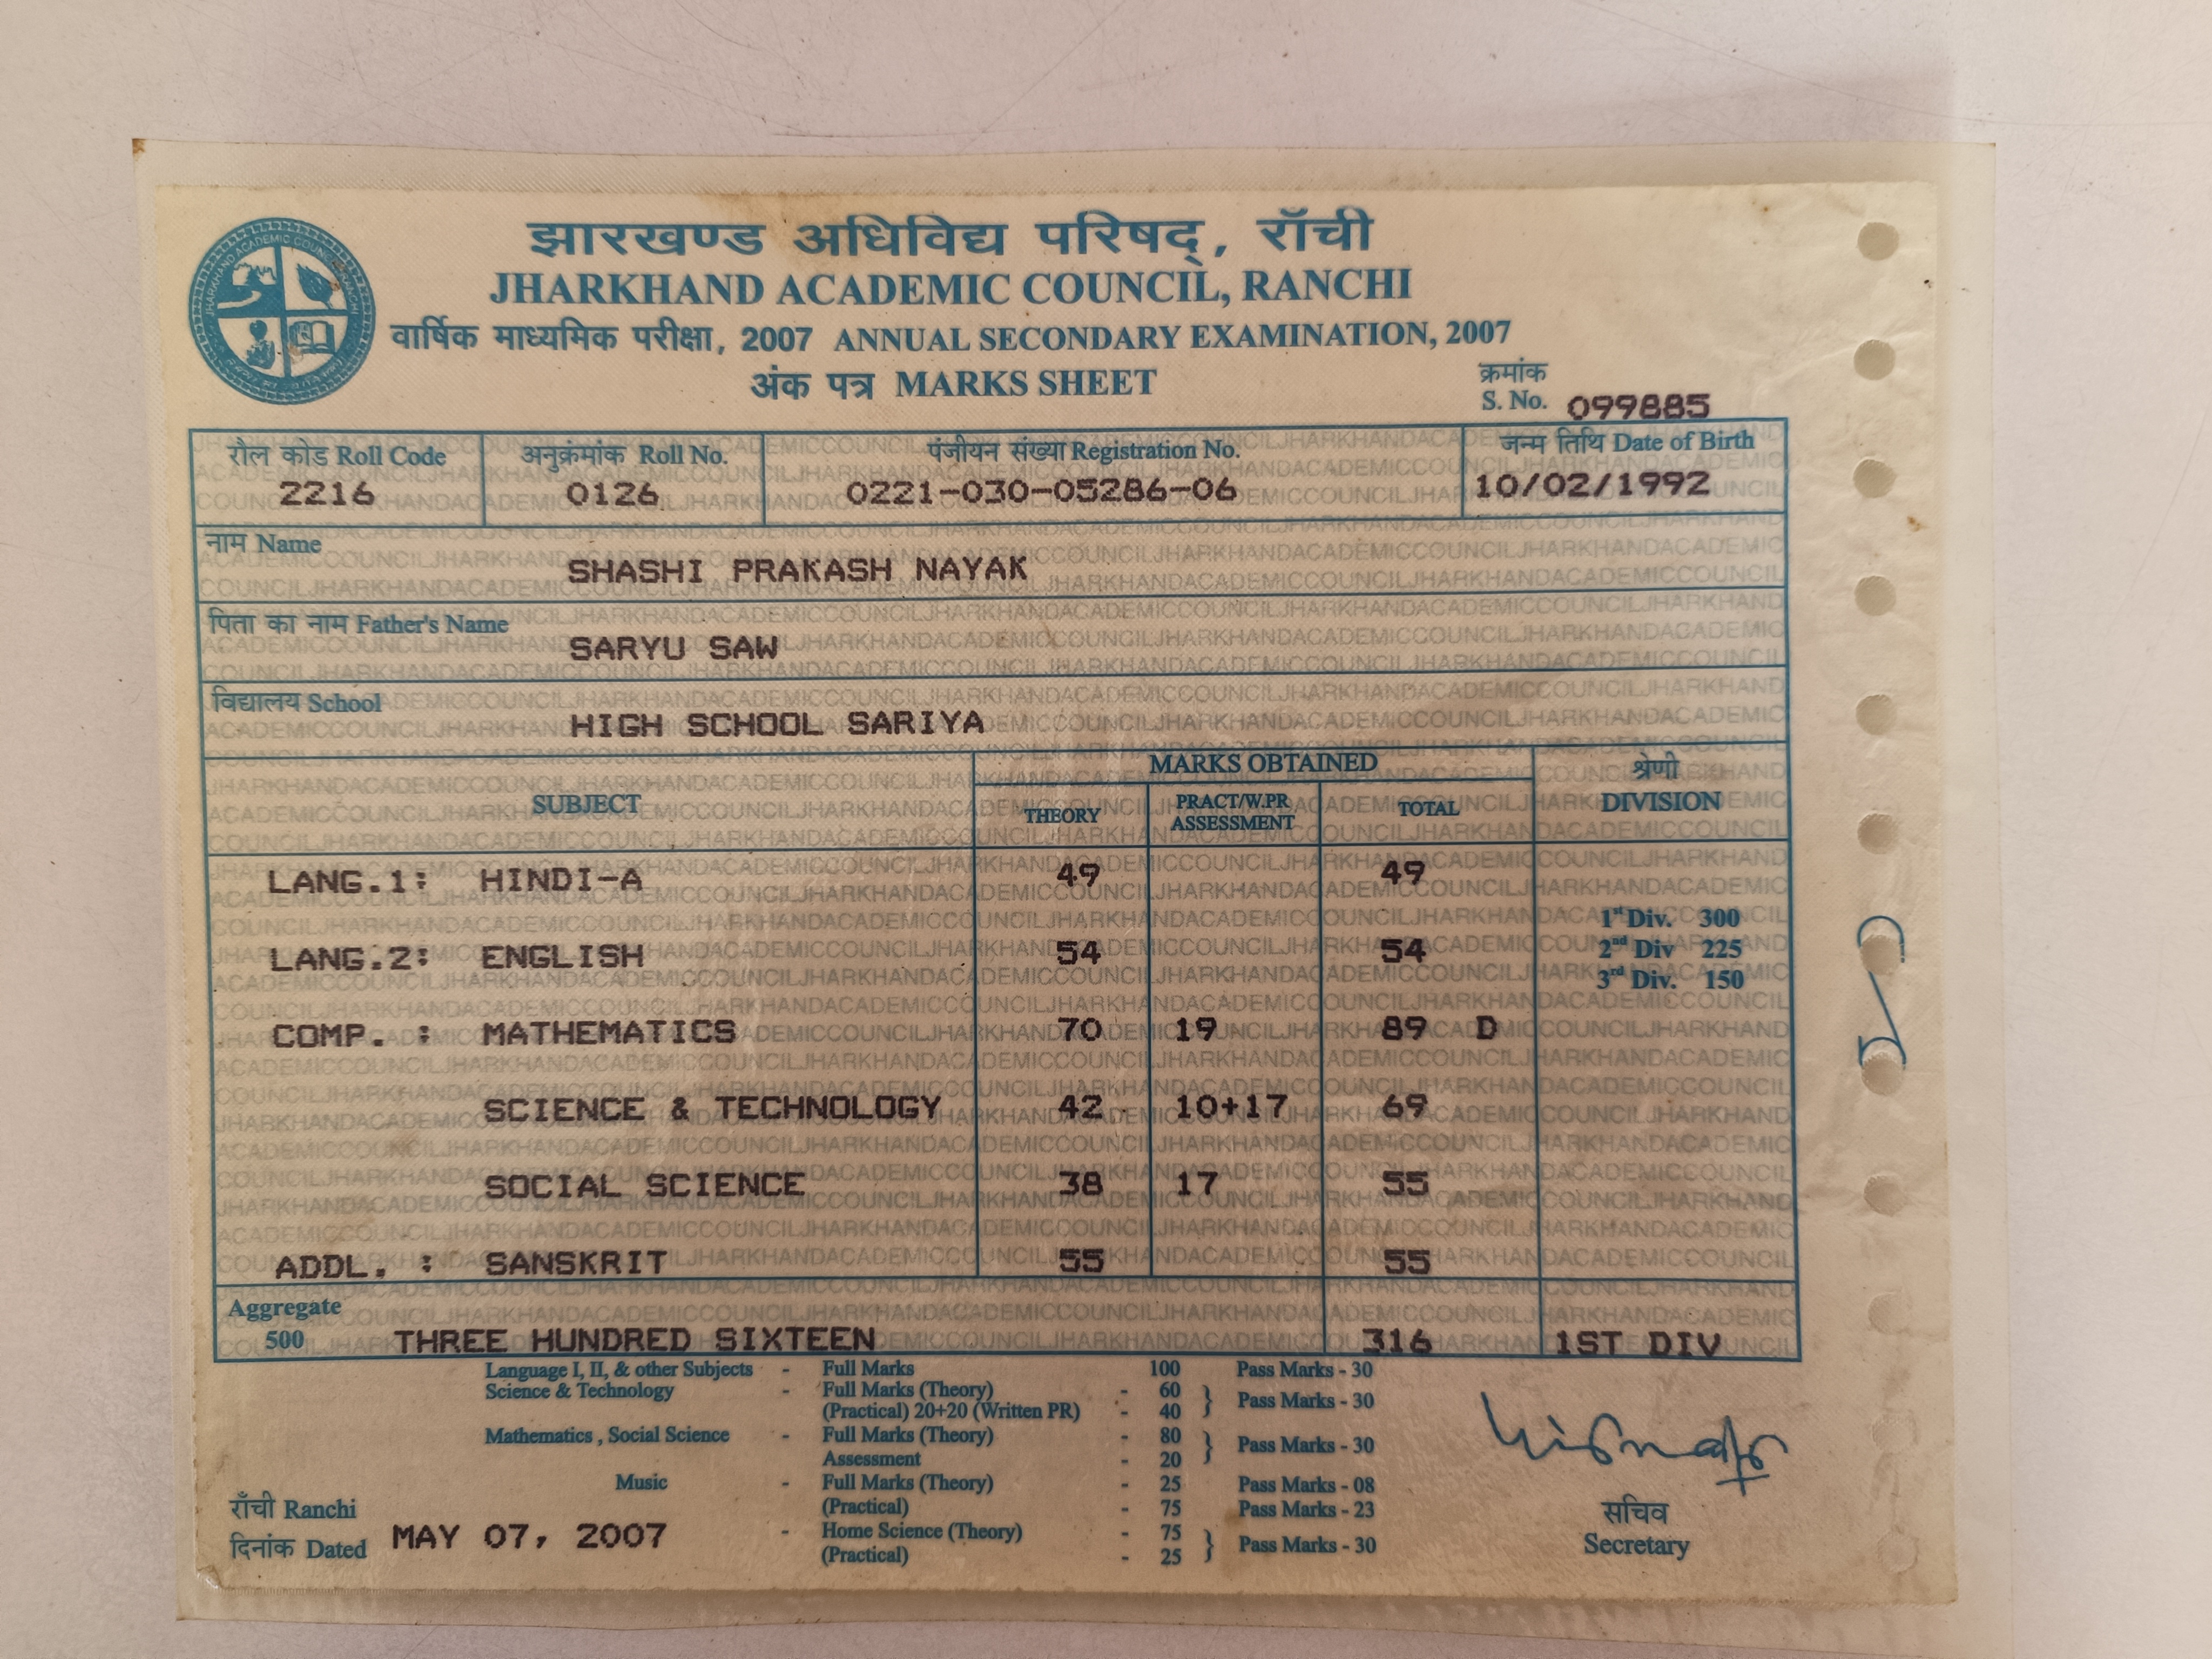 झारखण्ड अधिविद्य परिषद्, राँची
JHARKHAND ACADEMIC COUNCIL, RANCHI
वार्षिक माध्यमिक परीक्षा, 2007 ANNUAL SECONDARY EXAMINATION, 2007
अंक पत्र MARKS SHEET
क्रमांक
S. No. 099885
रौल कोड Roll Code अनुक्रंमांक Roll No. पंजीयन संख्या Registration No. जन्म तिथि Date of Birth
2216 0126 0221-030-05286-06 10/02/1992
नाम Name
SHASHI PRAKASH NAYAK
पिता का नाम Father's Name
SARYU SAW
विद्यालय School
HIGH SCHOOL SARIYA
MARKS OBTAINED श्रेणी
SUBJECT THEORY PRACT/W.PR ASSESSMENT TOTAL DIVISION
LANG.1: HINDI-A 49 49
1st Div. 300
LANG.2: ENGLISH 54 54
2nd Div 225
3rd Div. 150
COMP. : MATHEMATICS 70 19 89 D
SCIENCE & TECHNOLOGY 42 10+17 69
SOCIAL SCIENCE 38 17 55
ADDL. : SANSKRIT 55 55
Aggregate
500 THREE HUNDRED SIXTEEN 316 1ST DIV
Language I, II, & other Subjects - Full Marks 100 Pass Marks - 30
Science & Technology - Full Marks (Theory) - 60 } Pass Marks - 30
(Practical) 20+20 (Written PR) - 40
Mathematics , Social Science - Full Marks (Theory) - 80 } Pass Marks - 30
Assessment - 20
Music - Full Marks (Theory) - 25 Pass Marks - 08
(Practical) - 75 Pass Marks - 23
- Home Science (Theory) - 75 } Pass Marks - 30
(Practical) - 25
राँची Ranchi
दिनांक Dated MAY 07, 2007
सचिव
Secretary